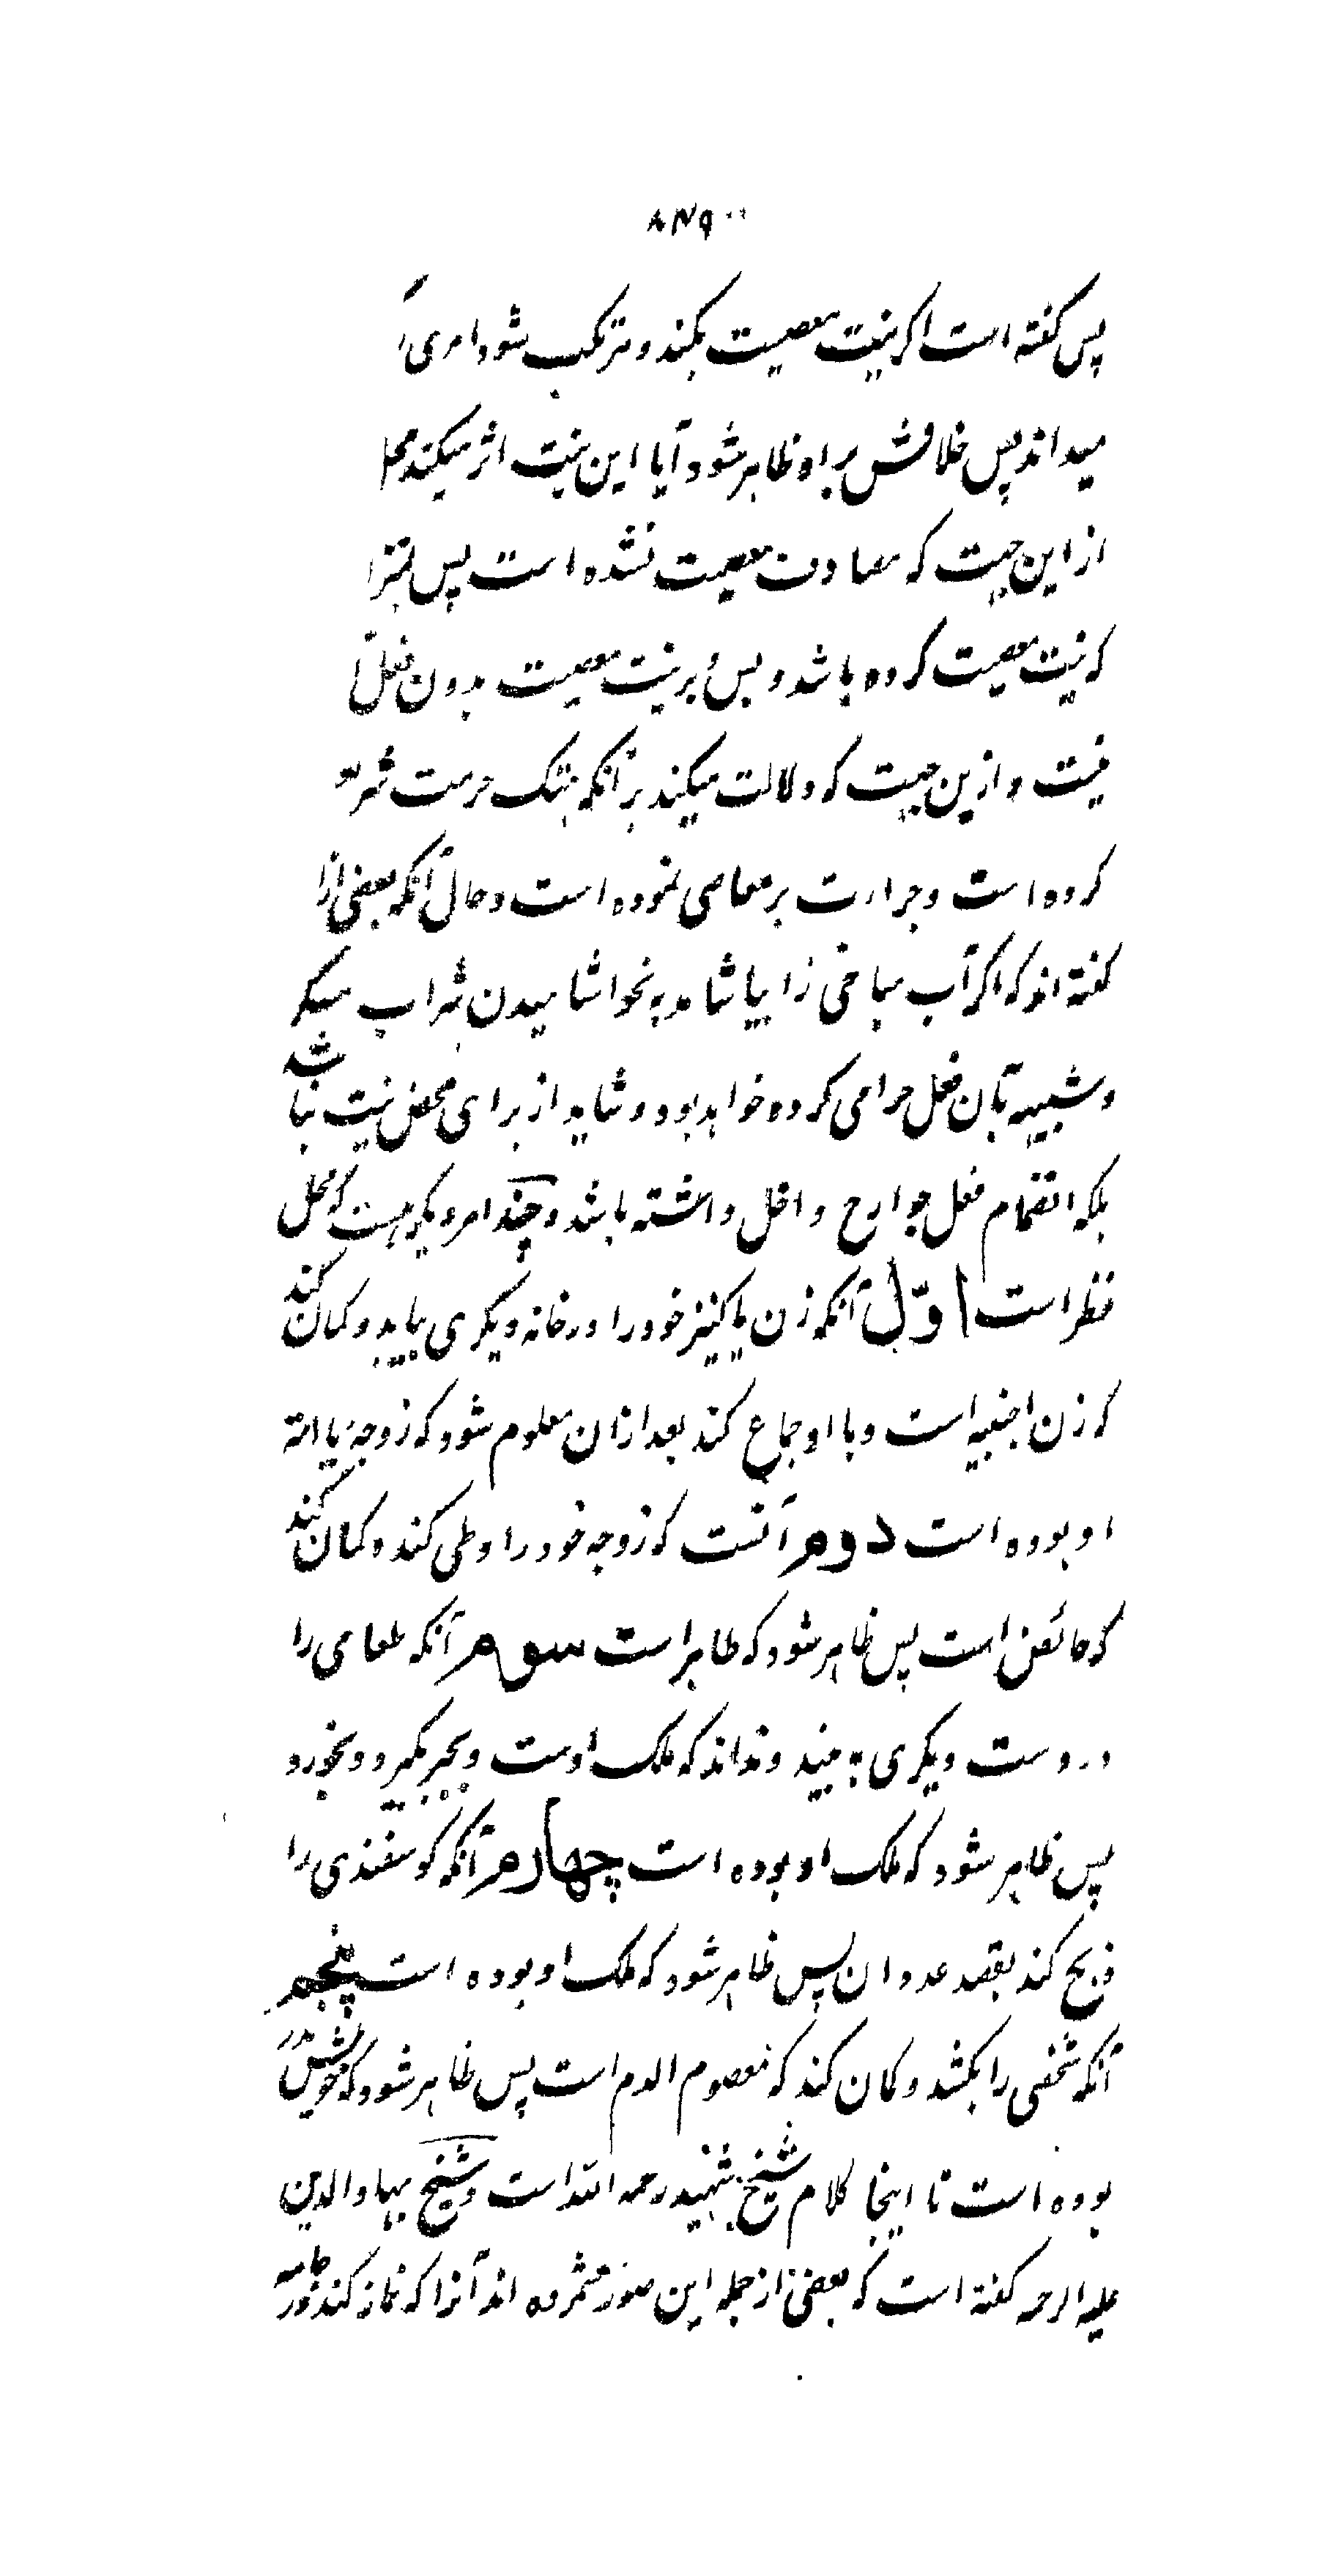 ۸۴۹
پس گفته است اگر نیت معصیت بکند و مرتکب شود امری
میداند پس خلافش بر او ظاهر شود آیا این نیت اثر میکند محل
از این حیث که مصادف معصیت نشده است پس بمنزله
که نیت معصیت کرده باشد و بس و بر نیت معصیت بدون فعل
نیست و ازین حیث که دلالت میکند بر آنکه هتک حرمت شرع
کرده است و جراءت بر معاصی نموده است و حال آنکه بعضی از
گفته اند که اگر آب مباحی را بیاشامد به نحو اشامیدن شراب مسکر
و شبیه بآن فعل حرامی کرده خواهد بود و شاید از برای محض نیت نباشد
بلکه انضمام فعل جوارح داخل داشته باشد و چند امر دیگر هست که محل
نظر است اوّل آنکه زن یا کنیز خود را در خانه دیگری بیابد و کمان کند
که زن اجنبیه است و با او جماع کند بعد ازان معلوم شود که زوجه یا امة
او بوده است دوم آنست که زوجه خود را وطی کند و کمان کند
که حائض است پس ظاهر شود که طاهر است سوم آنکه طعامی را
در دست دیگری به بیند و نداند که ملک اوست و بجبر بگیرد و بخورد
پس ظاهر شود که ملک او بوده است چهارم آنکه گوسفندی را
ذبح کند بقصد عدوان پس ظاهر شود که ملک او بوده است پنجم
آنکه شخصی را بکشد و کمان کند که معصوم الدم است پس ظاهر شود که خونش هدر
بوده است تا اینجا کلام شیخ شهید رحمه الله است و شیخ بهاء الدین
علیه الرحمه گفته است که بعضی از جمله این صور شمرده اند آنرا که نماز کند در جامه